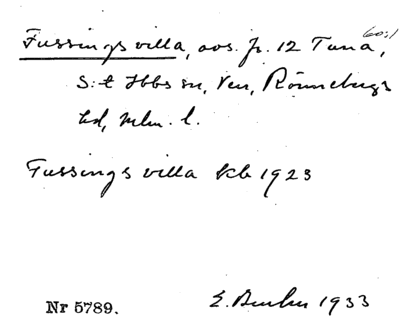 60:1
Fussings villa, avs. fr. 12 Tuna,
S:t Ibbs sn, Ven, Rönnebergs
hd, Mlm. l.
Fussings villa kb 1923
Nr 5789.
E. 1933